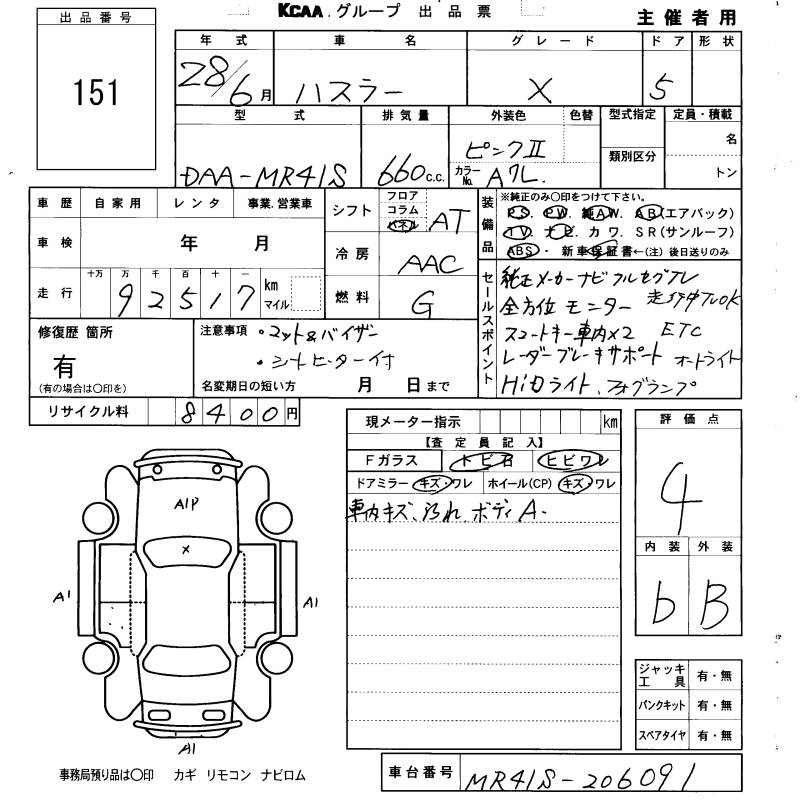 KCAA グループ 出品票
主催者用
出品番号
151
年式 車名 グレード ドア 形状
28/6月 ハスラー X 5
型式 排気量 外装色 色替 型式指定 定員・積載
DAA-MR41S 660c.c. ピンクII 類別区分 名
カラーNo. A7L. トン
車歴 自家用 レンタ 事業.営業車
シフト フロア コラム パネル AT
装備品 ※純正のみ○印をつけて下さい。
P.S. P.W. 純A.W. A.B(エアバック)
T.V. ナビ. カワ. S.R(サンルーフ)
ABS・新車保証書←(注) 後日送りのみ
車検 年 月
冷房 AAC
走行 十万 万 千 百 十 一 km マイル
92517
燃料 G
セールスポイント 純正メーカーナビ フルセグTV
全方位モニター 走行中TVOK
スマートキー車内×2 ETC
レーダーブレーキサポート オートライト
HiDライト、フォグランプ
修復歴 箇所
有
(有の場合は○印を)
注意事項 ・マット&バイザー
・シートヒーター付
名変期日の短い方 月 日まで
リサイクル料 8400円
現メーター指示 km
【査定員記入】
Fガラス トビ石 ヒビワレ
ドアミラー キズ・ワレ ホイール(CP) キズ・ワレ
車内キズ、汚れ、ボディA-
評価点
4
内装 外装
b B
A1P
X
A1 A1
A1
ジャッキ工具 有・無
パンクキット 有・無
スペアタイヤ 有・無
事務局預り品は○印 カギ リモコン ナビロム
車台番号 MR41S-206091